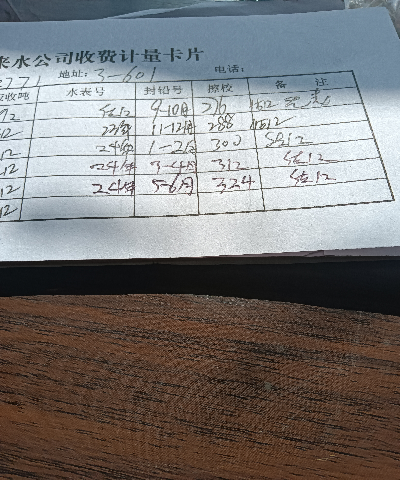 来水公司收费计量卡片
3771 地址: 3-601 电话:
应收吨 水表号 封铅号 擦校 备注
12 结12 9-10月 276 结12
12 23年 11-12月 288 结12
12 24年 1-2月 300 结12
12 24年 3-4月 312 结12
12 24年 5-6月 324 结12
12